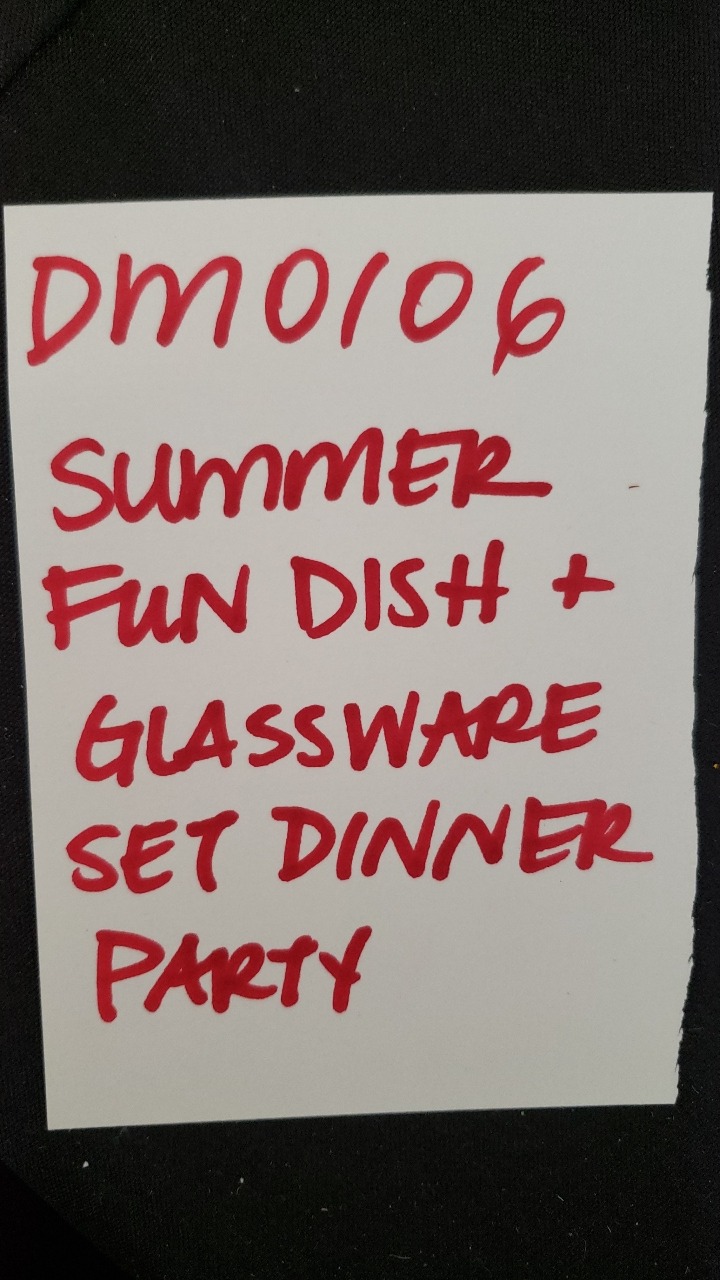 DM0106
SUMMER
FUN DISH +
GLASSWARE
SET DINNER
PARTY